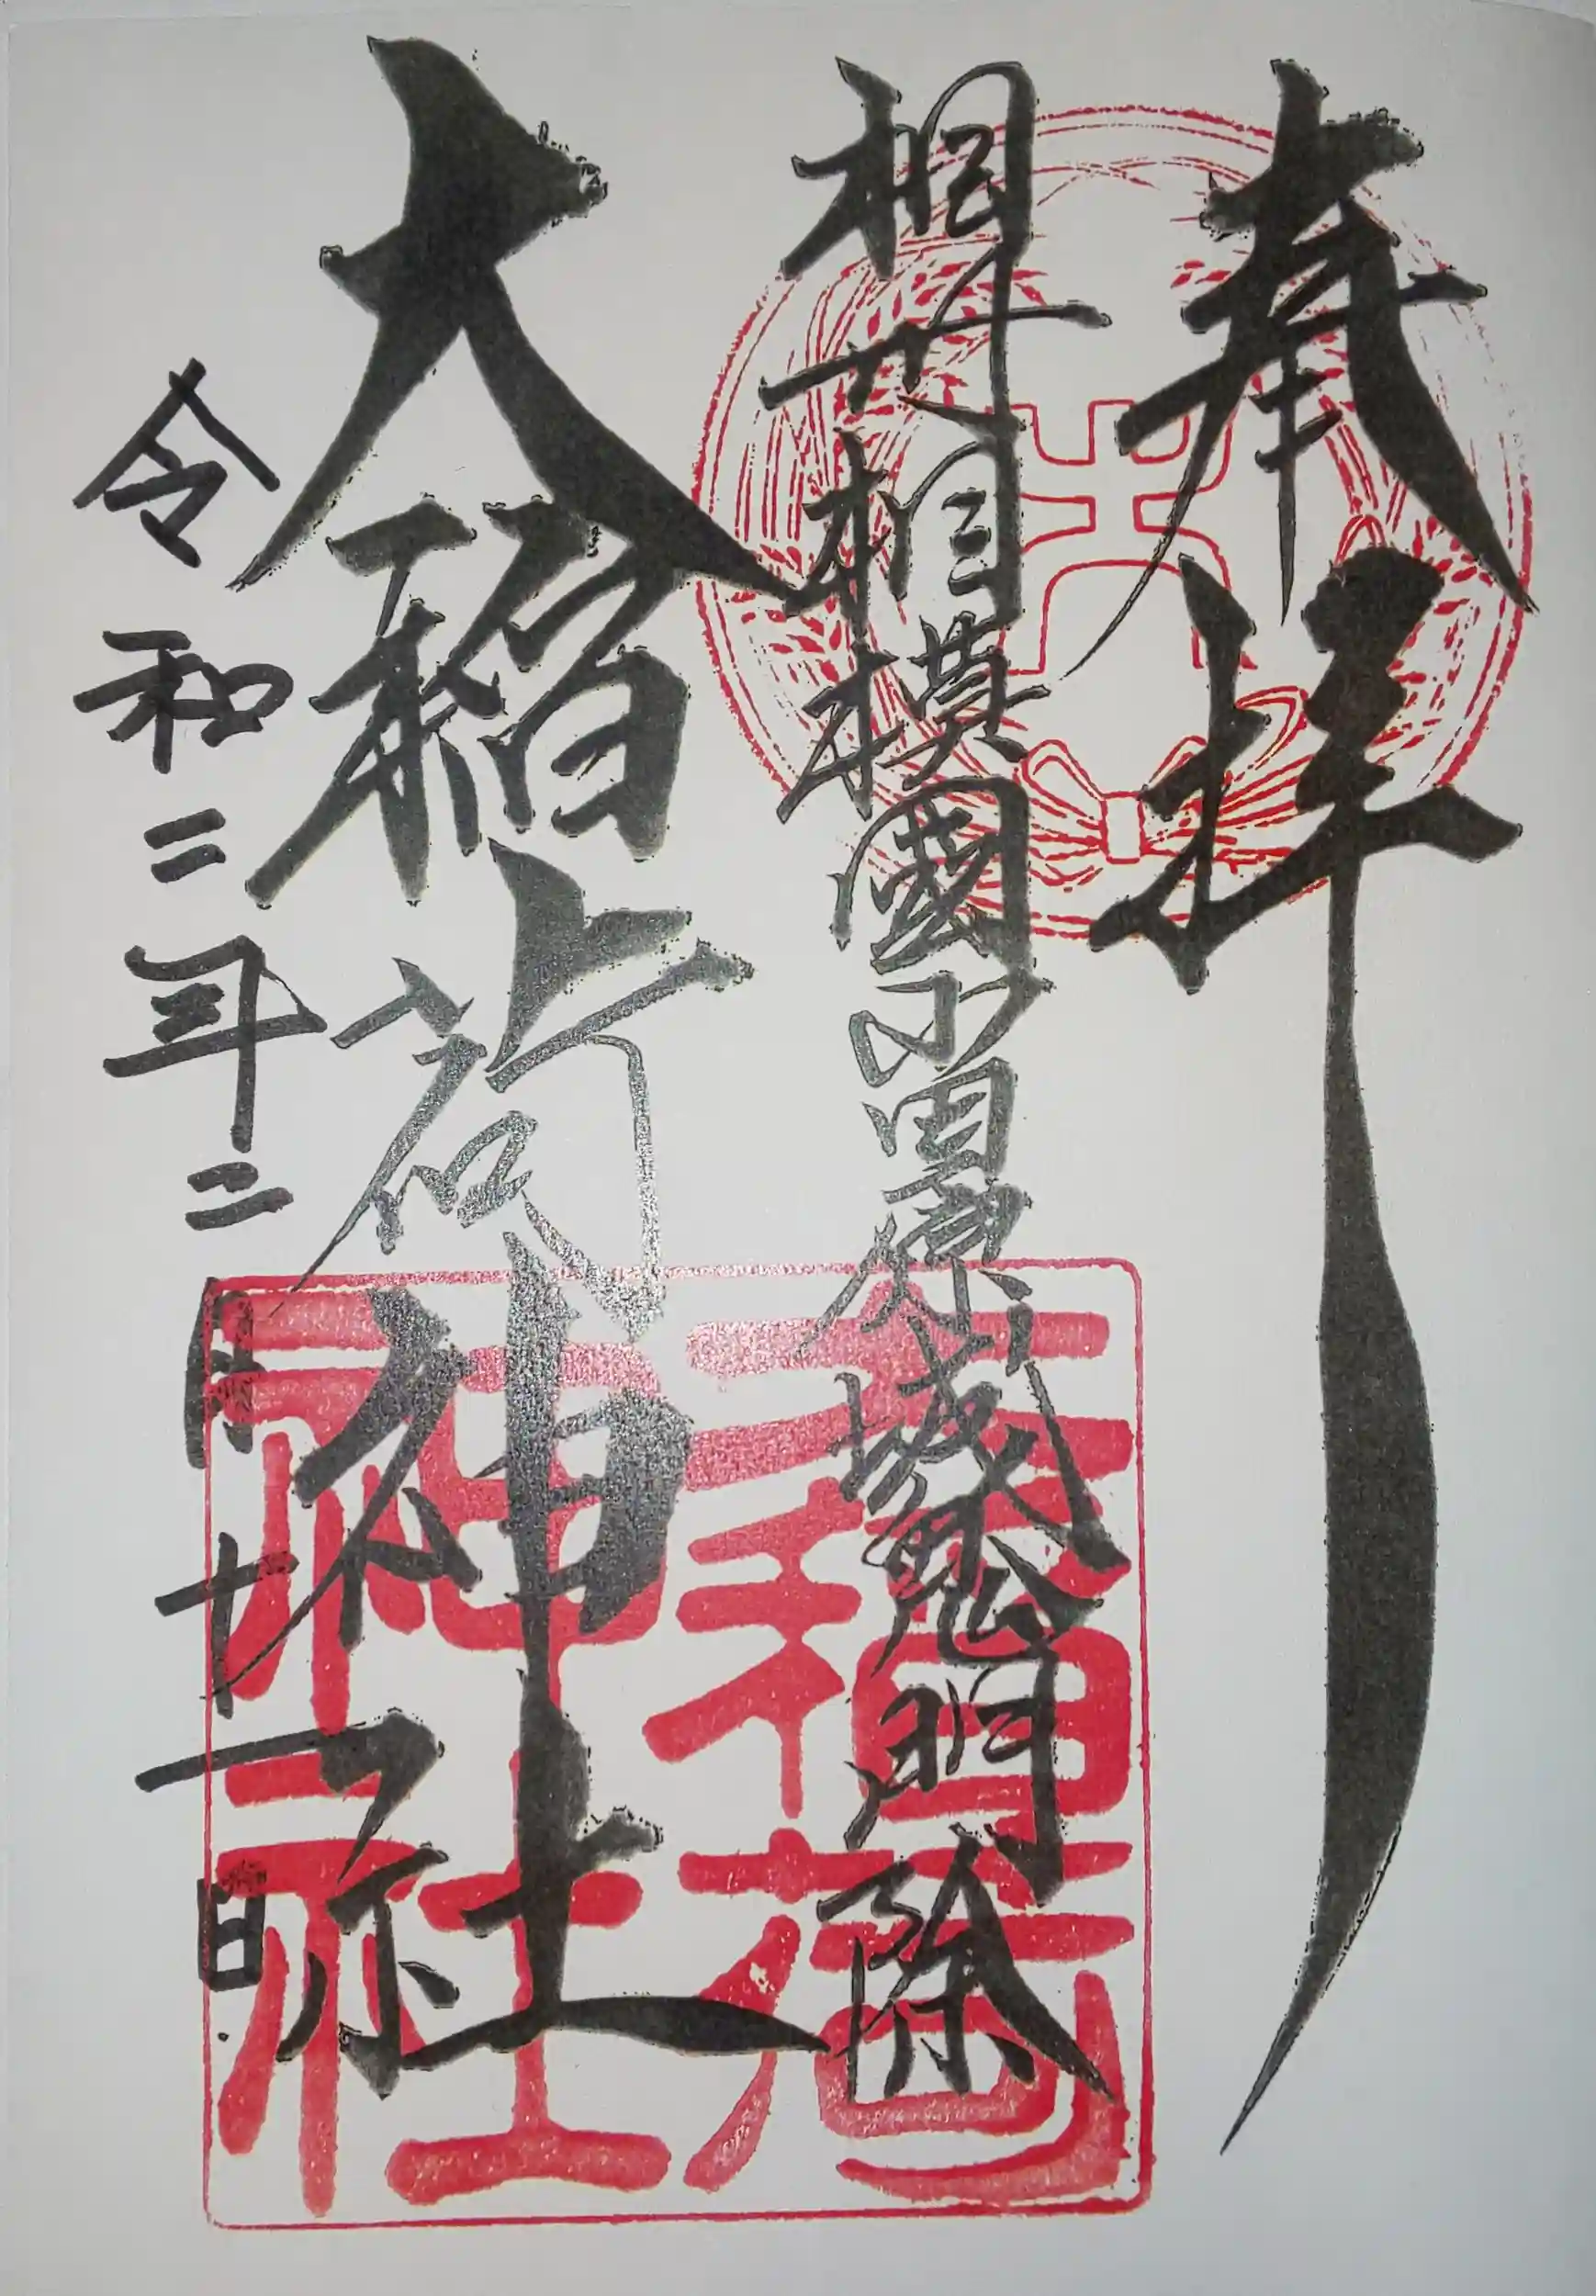 奉拝
相州相模國小田原城鬼門除
大稲荷神社
令和二年二月廿一日
大稲荷神社